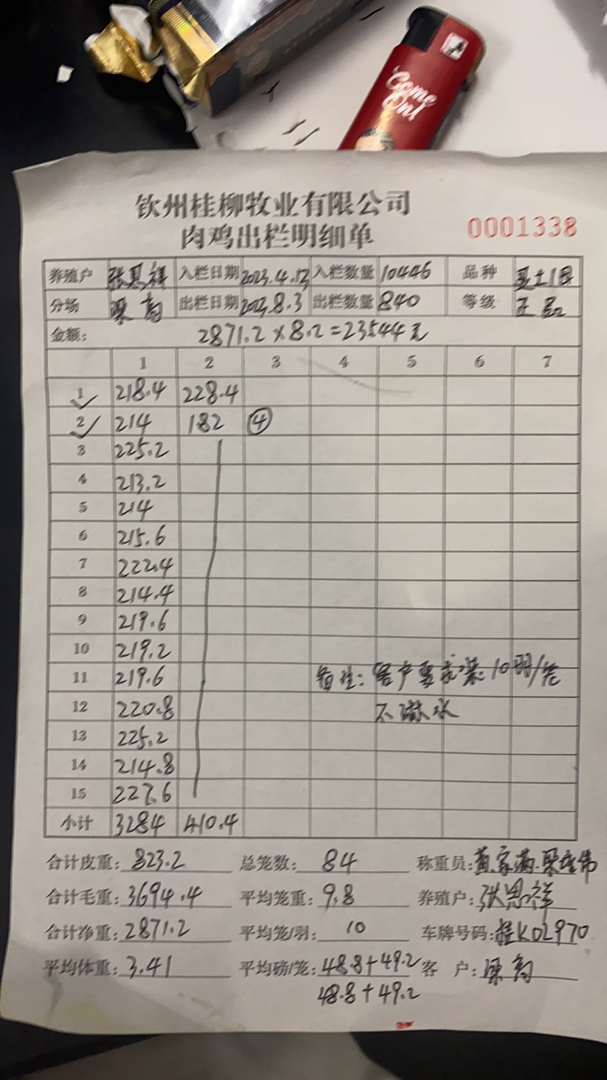 Come On!
钦州桂柳牧业有限公司
肉鸡出栏明细单
0001338
养殖户 张思祥 入栏日期 2023.4.13 入栏数量 10446 品种
分场 出栏日期 2023.8.3 出栏数量 840 等级 正品
金额: 2871.2×8.2=23544元
1 2 3 4 5 6 7
1 218.4 228.4
2 214 182 ④
3 225.2
4 213.2
5 214
6 215.6
7 222.4
8 214.4
9 219.6
10 219.2
11 219.6 备注: 客户要求装10羽/笼
12 220.8 不淋水
13 225.2
14 214.8
15 227.6
小计 3284 410.4
合计皮重: 823.2 总笼数: 84 称重员:
合计毛重: 3694.4 平均笼重: 9.8 养殖户: 张思祥
合计净重: 2871.2 平均笼/羽: 10 车牌号码: 桂K02970
平均体重: 3.41 平均磅/笼: 48.8+49.2 客 户:
48.8+49.2